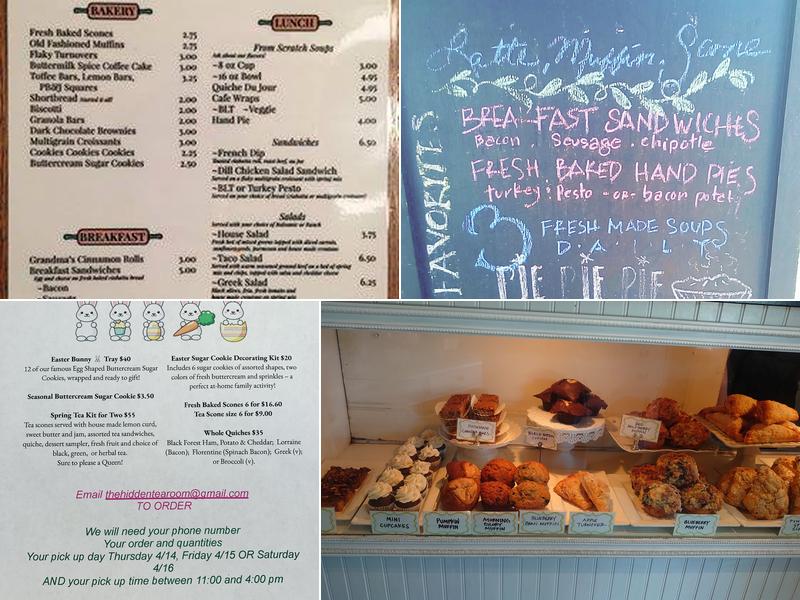 BAKERY
Fresh Baked Scones 2.75
Old Fashioned Muffins 2.75
Flaky Turnovers 3.00
Buttermilk Spice Coffee Cake 3.00
Toffee Bars, Lemon Bars, 3.25
PB&J Squares
Shortbread 2.00
Biscotti 2.00
Granola Bars 2.00
Dark Chocolate Brownies 3.00
Multigrain Croissants 3.00
Cookies Cookies Cookies 2.25
Buttercream Sugar Cookies 2.50
BREAKFAST
Grandma's Cinnamon Rolls 3.00
Breakfast Sandwiches 5.00
Egg and cheese on fresh baked ciabatta bread
~Bacon
LUNCH
From Scratch Soups
Ask about our flavors!
~8 oz Cup 3.00
~16 oz Bowl 4.95
Quiche Du Jour 4.95
Cafe Wraps 5.00
~BLT ~Veggie
Hand Pie 4.00
Sandwiches 6.50
~French Dip
~Dill Chicken Salad Sandwich
Served on a flaky multigrain croissant with spring mix
~BLT or Turkey Pesto
Salads
Served with your choice of balsamic or Ranch
~House Salad 3.75
~Taco Salad 6.50
~Greek Salad 6.25
Latte, Muffin, Scone
FAVORITES
BREAKFAST SANDWICHES
Bacon . Sausage . chipotle
FRESH BAKED HAND PIES
turkey : Pesto - or - bacon potat
FRESH MADE SOUPS
D A I L Y
PIE PIE PIE
Easter Bunny Tray $40
12 of our famous Egg Shaped Buttercream Sugar
Cookies, wrapped and ready to gift!
Seasonal Buttercream Sugar Cookie $3.50
Spring Tea Kit for Two $55
Tea scones served with house made lemon curd,
sweet butter and jam, assorted tea sandwiches,
quiche, dessert sampler, fresh fruit and choice of
black, green, or herbal tea.
Sure to please a Queen!
Easter Sugar Cookie Decorating Kit $20
Includes 6 sugar cookies of assorted shapes, two
colors of fresh buttercream and sprinkles – a
perfect at-home family activity!
Fresh Baked Scones 6 for $16.60
Tea Scone size 6 for $9.00
Whole Quiches $35
Black Forest Ham, Potato & Cheddar; Lorraine
(Bacon); Florentine (Spinach Bacon); Greek (v);
or Broccoli (v).
Email thehiddentearoom@gmail.com
TO ORDER
We will need your phone number
Your order and quantities
Your pick up day Thursday 4/14, Friday 4/15 OR Saturday
4/16
AND your pick up time between 11:00 and 4:00 pm
MINI
CUPCAKES
PUMPKIN
MUFFIN
MORNING
GLORY
MUFFIN
BLUEBERRY
BRAN MUFFIN
APPLE
TURNOVER
BLUEBERRY
MUFFIN